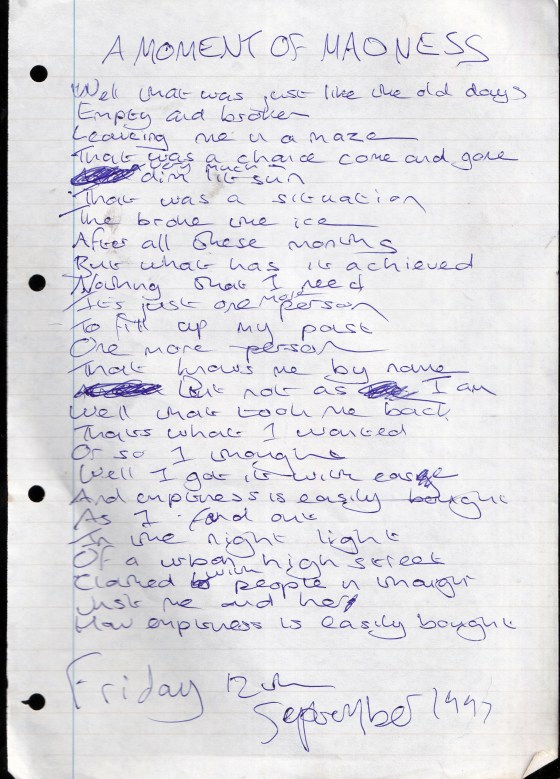 A MOMENT OF MADNESS
Well that was just like the old days
Empty and broken
Leaving me in a maze
That was a chance come and gone
very much
dim lit sun
That was a situation
The broke the ice
After all these months
But what has it achieved
Nothing that I need
It's just one more person
To fill up my past
One more person
That knows me by name
But not as I am
Well that took me back
Thats what I wanted
Or so I thought
Well I got it with ease
And emptiness is easily bought
As I find out
In the night light
Of a urban high street
Claimed with people in thought
Just me and her
How emptiness is easily bought
Friday 12th
September 1997